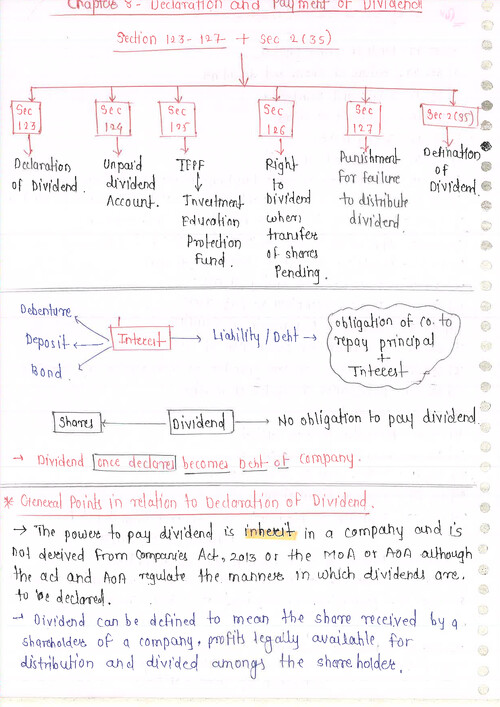 Chapter 8 - Declaration and Payment of Dividend
Section 123-127 + Sec 2(35)
Sec 123
Sec 124
Sec 125
Sec 126
Sec 127
Sec 2(35)
Declaration
of Dividend.
Unpaid
dividend
Account.
IEPF
Investment
Education
Protection
Fund.
Right
to
Dividend
when
transfer
of shares
Pending.
Punishment
for failure
to distribute
dividend.
Defination
of
Dividend.
Debenture
Deposit
Bond.
Interest
Liability / Debt
obligation of co. to
repay principal
+
Interest
Shares
Dividend
No obligation to pay dividend
→ Dividend once declares becomes Debt of company.
* General Points in relation to Declaration of Dividend.
→ The power to pay dividend is inherit in a company and is
not derived from Companies Act, 2013 or the MoA or AoA although
the act and AoA regulate the manners in which dividends are
to be declared.
→ Dividend can be defined to mean the share received by a
shareholders of a company, profits legally available for
distribution and divided amongs the shareholder.